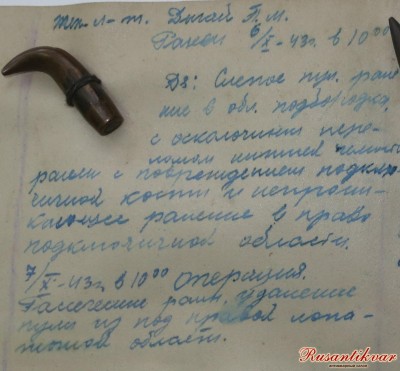 тех-л-т. Дысай П. М.
Ранен 6/X-43г. в 10⁰⁰
Ds: Слепое пул. ране-
ние в обл. подбородка,
с оскалочным пере-
ломом нижней челюсти
ранен с повреждением подклю-
чичной кости и непрони-
кающее ранение в право
подключичной области.
7/X-43г. в 10⁰⁰ операция.
Рассечение раны, удаление
пули из под правой лопа-
точной области.
Rusantikvar